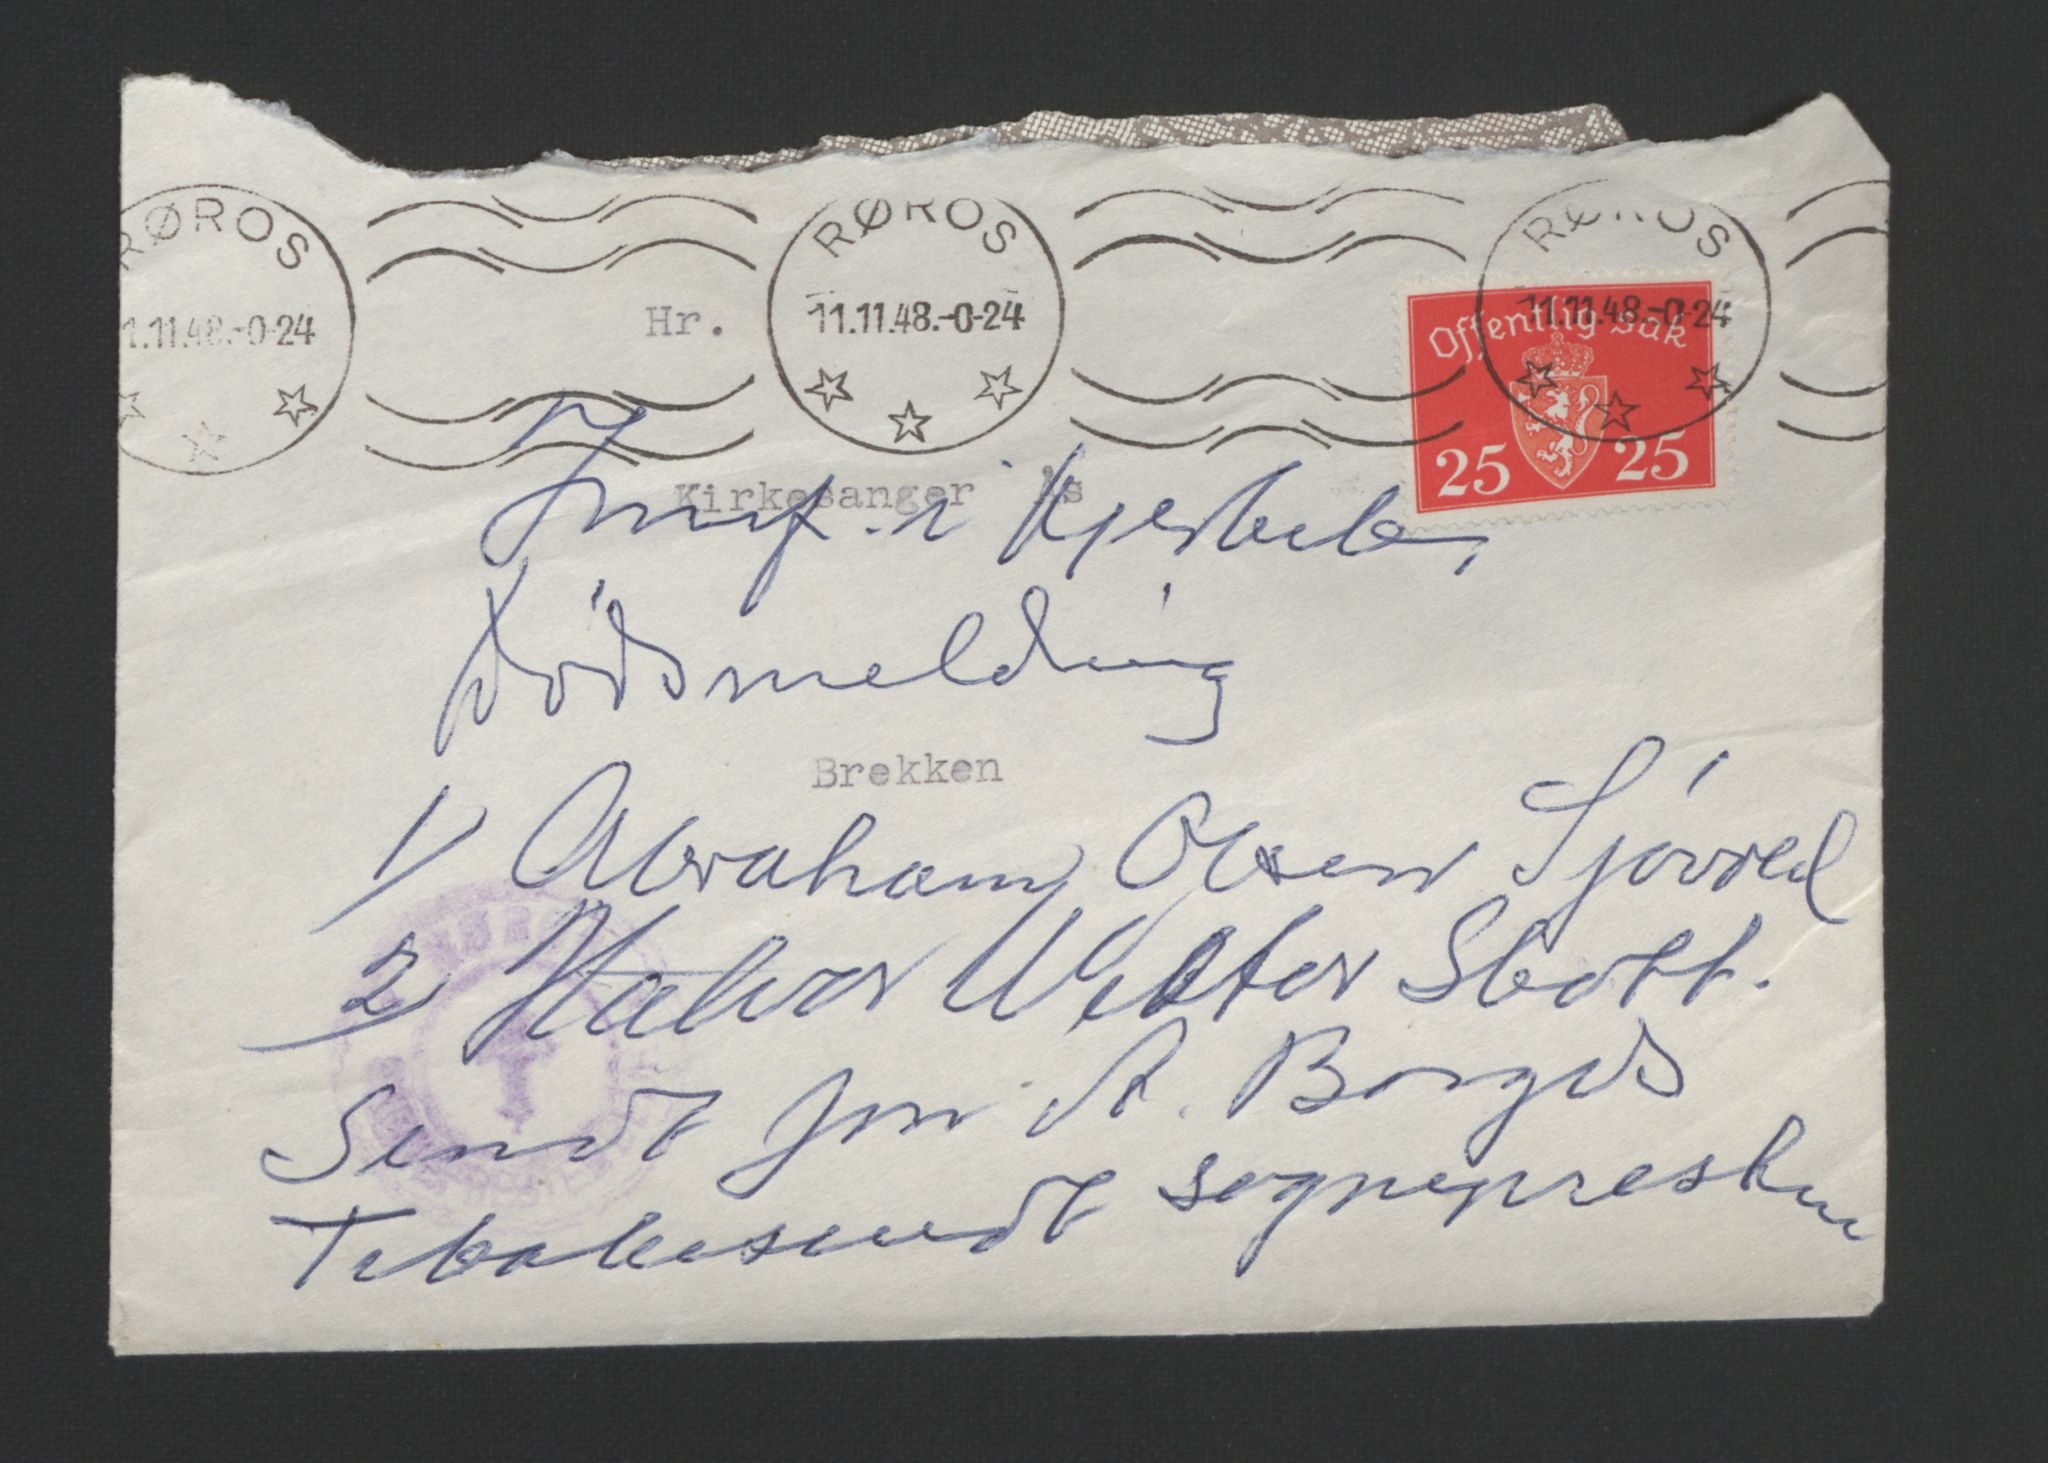 RØROS
11.11.48.-0-24
RØROS
11.11.48.-0-24
RØROS
11.11.48.-0-24
Offentlig Sak
25 25
Hr.
Kirkesanger Ås
Brekken
Innf. i Kjerkeb.
Dødsmelding
1/ Abraham Olsen Sjøvold
2 Halvor Viktor Skott.
Sendt fra A. Borgos
Tebakesendt sognepresten